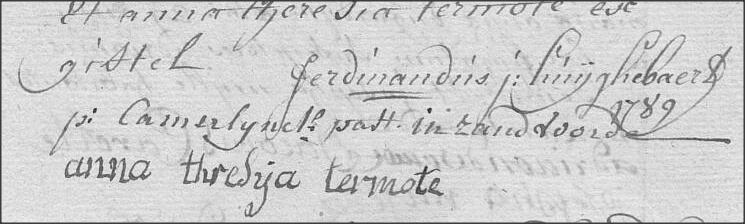 Et anna theresia termote esc
gistel ferdinandus j: huÿghebaert
1789
p: Camerlynck past. in zandvoorde
anna thresija termote